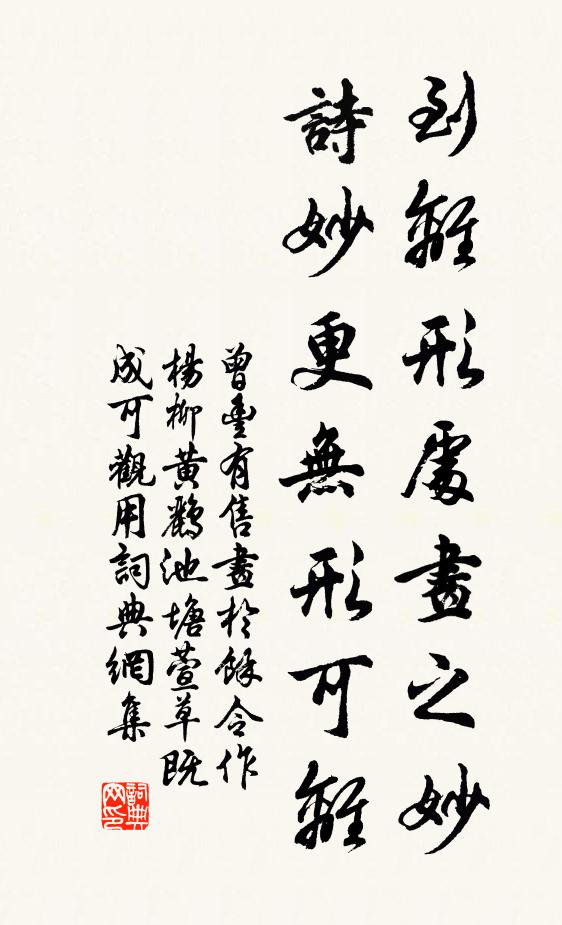 到離形處畫之妙
詩妙更無形可離
曾豐有售畫於餘令作
楊柳黃鸝池塘萱草既
成可觀用詞典網集
詞典
网印